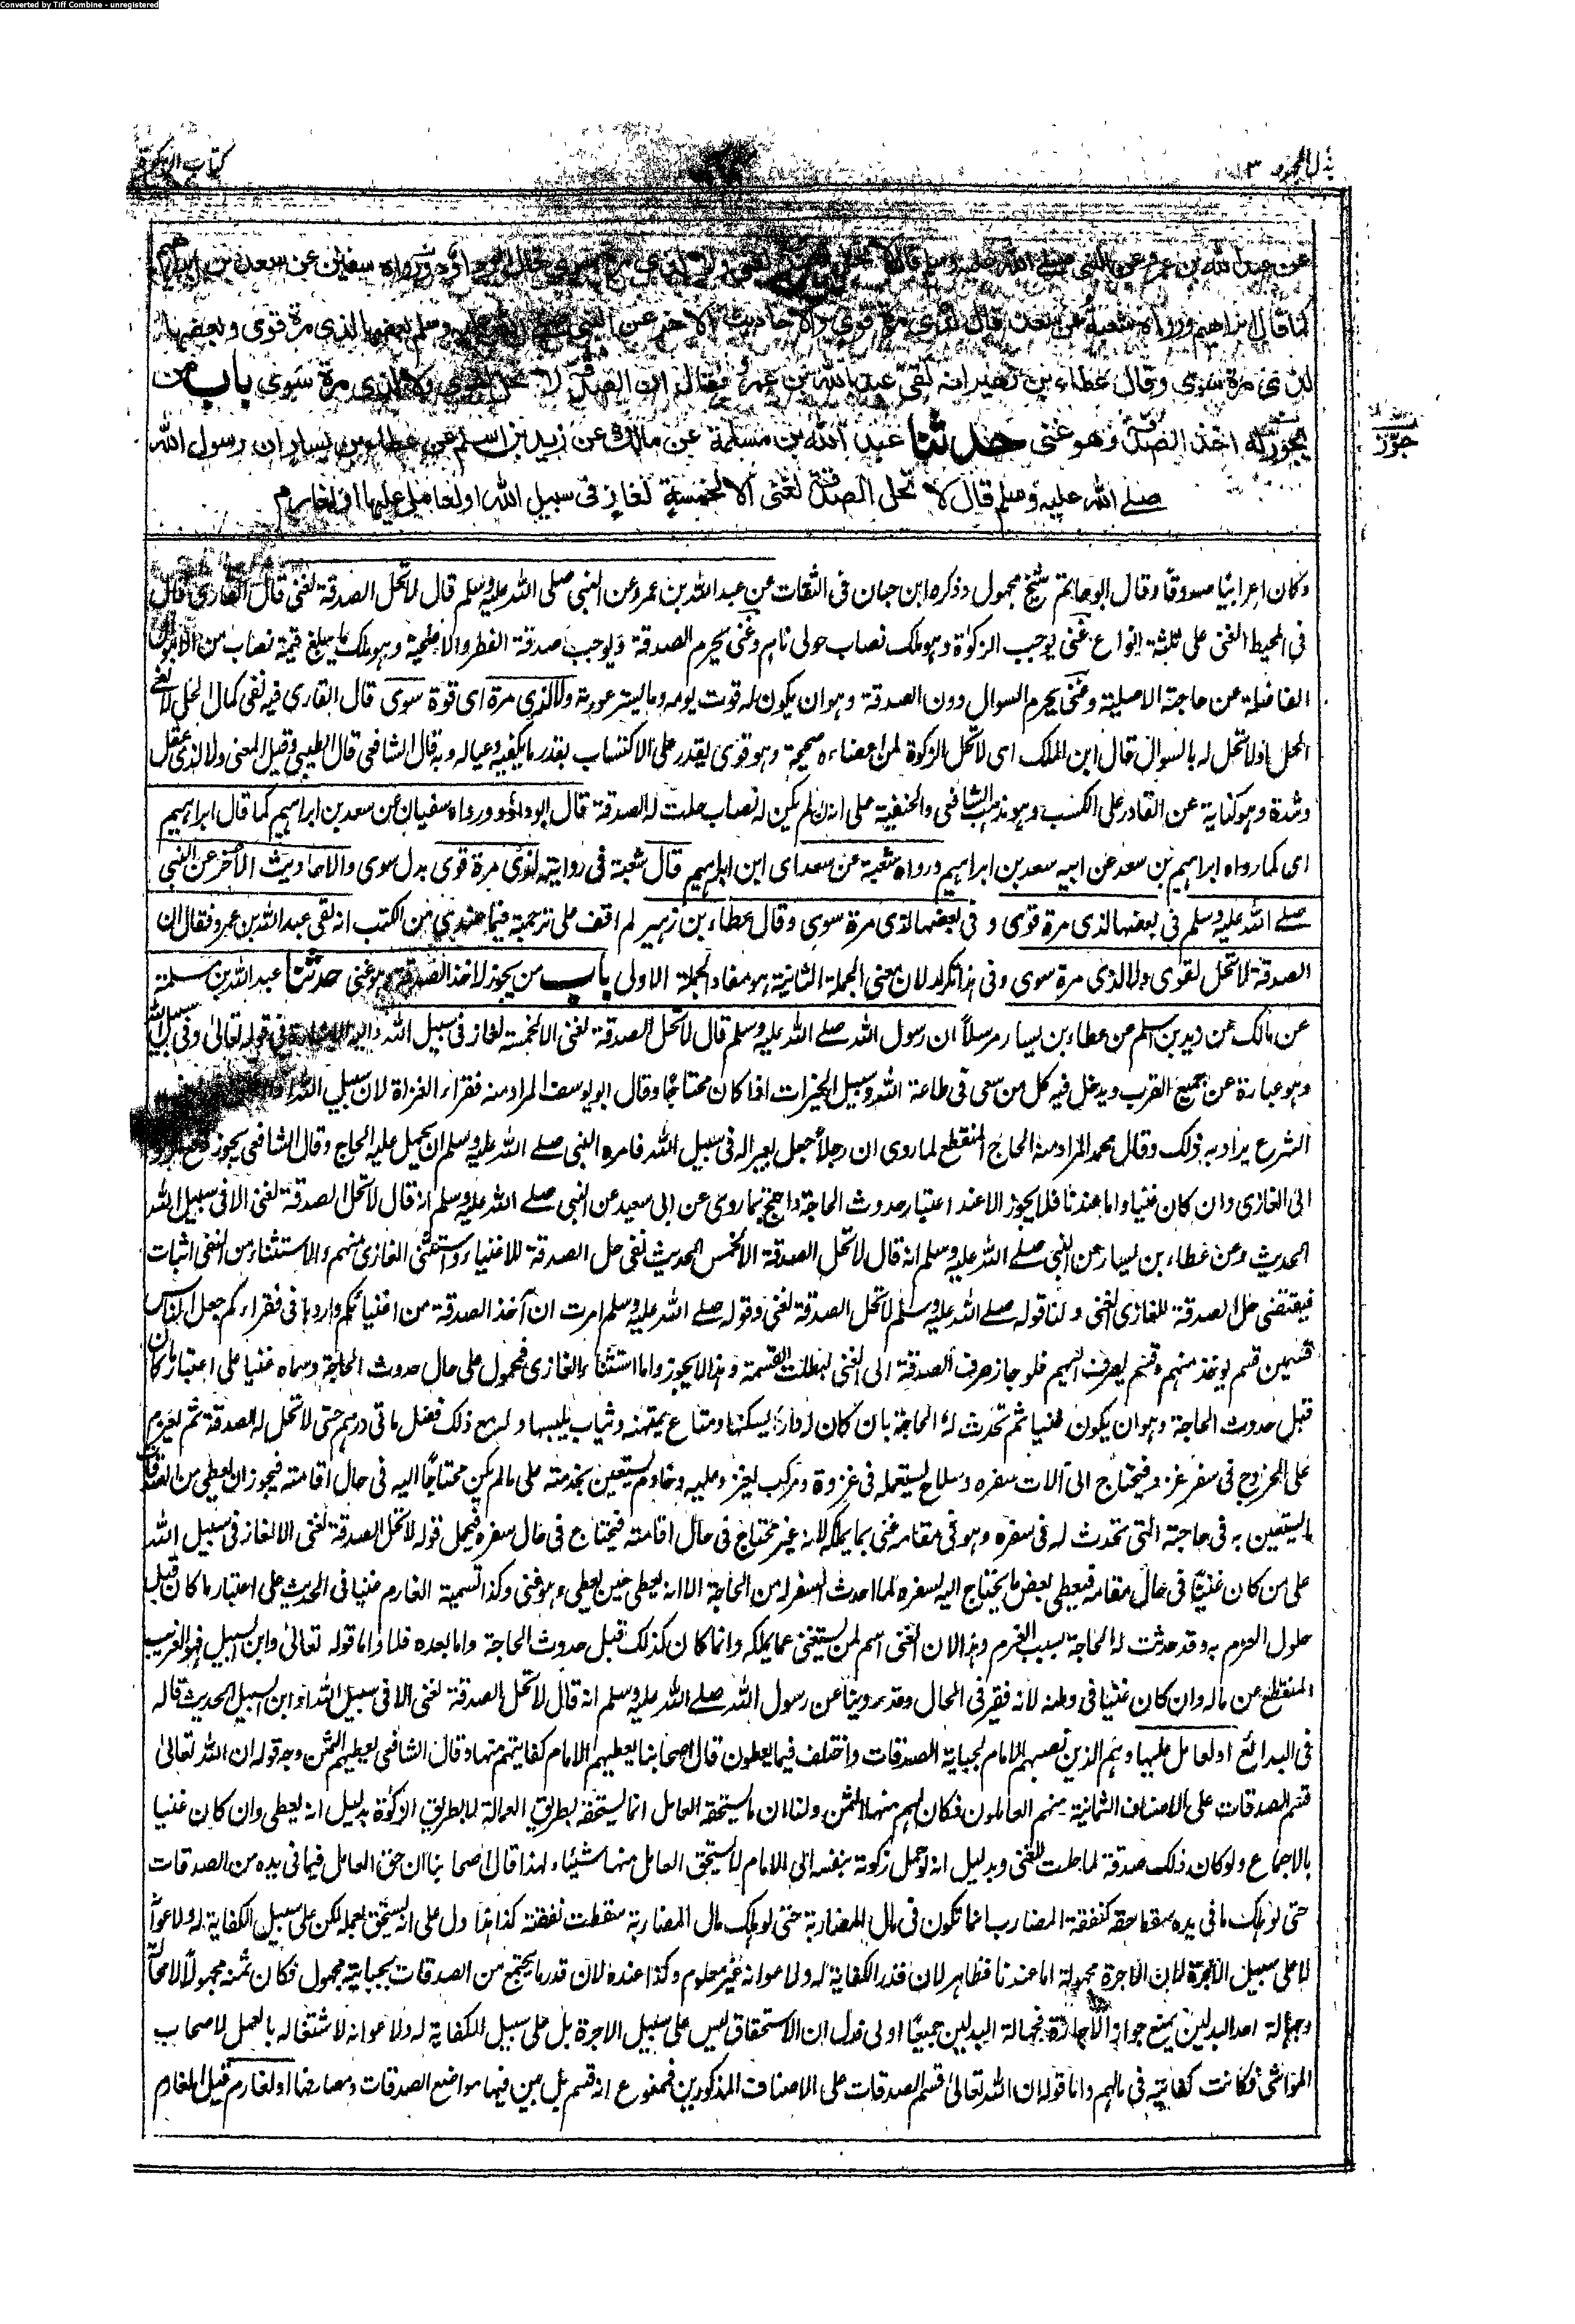 Converted by Tiff Combine - unregistered
بذل المجهود ٣
كتاب الزكوة
عن عبد الله بن عمرو عن النبي صلى الله عليه وسلم قال لا تحل لغني ولا لذي مرة سوي قال ابو داؤد ورواه سفين عن سعد بن ابراهيم
كما قال ابراهيم ورواه شعبة عن سعد قال لذي مرة قوى والاحاديث الاخر عن النبي صلى الله عليه وسلم بعضها لذى مرة قوى وبعضها
لذى مرة سوى وقال عطاء بن زهير انه لقى عبد الله بن عمرو فقال ان الصدقة لا تحل لقوى ولا لذى مرة سوى باب من
يجوز له اخذ الصدقة وهو غنى حدثنا عبد الله بن مسلمة عن مالك عن زيد بن اسلم عن عطاء بن يسار ان رسول الله
جوز
صلے الله عليه وسلم قال لا تحل الصدقة لغنى الا لخمسة لغاز فى سبيل الله او لعامل عليها او لغارم
وكان اعرابيا صدوقا وقال ابو حاتم شيخ مجهول وذكره ابن حبان فى الثقات عن عبد الله بن عمرو عن النبى صلى الله عليه وسلم قال لا تحل الصدقة لغنى قال القارى قال
فى المحيط الغنى على ثلثة انواع غنى يوجب الزكوة وهو ملك نصاب حولى نام وغنى يحرم الصدقة ويوجب صدقة الفطر والاضحية وهو ملك ما يبلغ قيمة نصاب من الاموال
الفاضلة عن حاجته الاصلية وغنى يحرم السوال دون الصدقة وهو ان يكون له قوت يومه وما يستر عورته ولا لذى مرة اى قوة سوى قال القارى فيه نفى كمال الحل لا نفى
الحل او لا تحل له بالسوال قال ابن الملك اى لا تحل الزكوة لمن اعضاءه صحيحة وهو قوى يقدر على الاكتساب بقدر ما يكفيه وعياله وبه قال الشافعى قال الطيبى وقيل المعنى ولا لذى عقل
وشدة وهو كناية عن القادر على الكسب وهو مذهب الشافعى والحنفية على انه ان لم يكن له نصاب حلت له الصدقة قال ابو داؤد ورواه سفيان عن سعد بن ابراهيم كما قال ابراهيم
اى كما رواه ابراهيم بن سعد عن ابيه سعد بن ابراهيم ورواه شعبة عن سعد اى ابن ابراهيم قال شعبة فى روايته لذى مرة قوى بدل سوى والاحاديث الاخر عن النبى
صلے الله عليه وسلم فى بعضها لذى مرة قوى و فى بعضها لذى مرة سوى وقال عطاء بن زهير لم اقف على ترجمته فيما عندى من الكتب انه لقى عبد الله بن عمرو فقال ان
الصدقة لا تحل لقوى ولا لذى مرة سوى وفى هذا تكرار لان معنى الجملة الثانية هو مفاد الجملة الاولى باب من يجوز له اخذ الصدقة وهو غنى حدثنا عبد الله بن مسلمة
عن مالك عن زيد بن اسلم عن عطاء بن يسار مرسلا ان رسول الله صلے الله عليه وسلم قال لا تحل الصدقة لغنى الا لخمسة لغاز فى سبيل الله واليه الاشارة فى قوله تعالى وفى سبيل الله
وهو عبارة عن جميع القرب ويدخل فيه كل من سعى فى طاعة الله وسبيل الخيرات اذا كان محتاجا وقال ابو يوسف المراد منه فقراء الغزاة لان سبيل الله
الشرع يراد به ذلك وقال محمد المراد منه الحاج المنقطع لما روى ان رجلا جعل بعيرا له فى سبيل الله فامره النبى صلے الله عليه وسلم ان يحمل عليه الحاج وقال الشافعى يجوز دفع الزكوة
الى الغازى وان كان غنيا واما عندنا فلا يجوز الا عند اعتبار حدوث الحاجة واحتج بما روى عن ابى سعيد عن النبى صلے الله عليه وسلم انه قال لا تحل الصدقة لغنى الا فى سبيل الله
الحديث وعن عطاء بن يسار عن النبى صلے الله عليه وسلم انه قال لا تحل الصدقة الا لخمس الحديث نفى حل الصدقة للاغنياء واستثنى الغازى منهم والاستثناء من النفى اثبات
فيقتضى حل الصدقة للغازى الغنى ولنا قوله صلے الله عليه وسلم لا تحل الصدقة لغنى وقوله صلے الله عليه وسلم امرت ان آخذ الصدقة من اغنيائكم واردها فى فقرائكم جعل الناس
قسمين قسم يوخذ منهم وقسم يصرف اليهم فلو جاز صرف الصدقة الى الغنى لبطلت القسمة وهذا لا يجوز واما استثناء الغازى فمحمول على حال حدوث الحاجة وسماه غنيا على اعتبار ما كان
قبل حدوث الحاجة وهو ان يكون غنيا ثم تحدث له الحاجة بان كان له دار يسكنها ومتاع يمتهنه وثياب يلبسها وله مع ذلك فضل مائتى درهم حتى لا تحل له الصدقة ثم يعزم
على الخروج فى سفر غزو فيحتاج الى آلات سفره وسلاح يستعمله فى غزوة ومركب يغزو عليه وخادم يستعين بخدمته على ما لم يكن محتاجا اليه فى حال اقامته فيجوز ان يعطى من الصدقات
ما يستعين به فى حاجته التى تحدث له فى سفره وهو فى مقامه غنى بما يملكه لانه غير محتاج فى حال اقامته فيحتاج فى حال سفره فيحمل قوله لا تحل الصدقة لغنى الا لغاز فى سبيل الله
على من كان غنيا فى حال مقامه فيعطى بعض ما يحتاج اليه لسفره لما احدث السفر له من الحاجة الا انه يعطى حين يعطى وهو غنى وكذا تسمية الغارم غنيا فى الحديث على اعتبار ما كان قبل
حلول الغرم به وقد حدثت له الحاجة بسبب الغرم وهذا لان الغنى اسم لمن يستغنى عما يملكه وانما كان كذلك قبل حدوث الحاجة واما بعده فلا واما قوله تعالى وابن السبيل فهو الغريب
المنقطع عن ماله وان كان غنيا فى وطنه لانه فقير فى الحال وقد روينا عن رسول الله صلے الله عليه وسلم انه قال لا تحل الصدقة لغنى الا فى سبيل الله او ابن السبيل الحديث قاله
فى البدائع او لعامل عليها وهم الذين نصبهم الامام لجباية الصدقات واختلف فيما يعطون قال اصحابنا يعطيهم الامام كفايتهم منها وقال الشافعى يعطيهم الثمن وجه قوله ان الله تعالى
قسم الصدقات على الاصناف الثمانية منهم العاملون فكان لهم منها الثمن ولنا ان ما يستحقه العامل انما يستحقه بطريق العمالة لا بطريق الزكوة بدليل انه يعطى وان كان غنيا
بالاجماع ولو كان ذلك صدقة لما حلت للغنى وبدليل انه لو حمل زكوته بنفسه الى الامام لا يستحق العامل منها شيئا ولهذا قال اصحابنا ان حق العامل فيما فى يده من الصدقات
حتى لو هلك ما فى يده سقط حقه كنفقة المضارب انما تكون فى مال المضاربة حتى لو هلك مال المضاربة سقطت نفقته كذا هذا دل على انه يستحق بعمله لكن على سبيل الكفاية له ولاعوانه
لا على سبيل الاجرة لان الاجرة مجهولة اما عندنا فظاهر لان قدر الكفاية له ولاعوانه غير معلوم وكذا عنده لان قدر ما يجتمع من الصدقات بجبايته مجهول فكان ثمنه مجهولا لا محالة
وجهالة احد البدلين يمنع جواز الاجارة فجهالة البدلين جميعا اولى فدل ان الاستحقاق ليس على سبيل الاجرة بل على سبيل الكفاية له ولاعوانه لاشتغاله بالعمل لاصحاب
المواشى فكانت كفايته فى مالهم واما قوله ان الله تعالى قسم الصدقات على الاصناف المذكورين فممنوع انه قسم بل بين فيها مواضع الصدقات ومصارفها او لغارم قيل الغارم